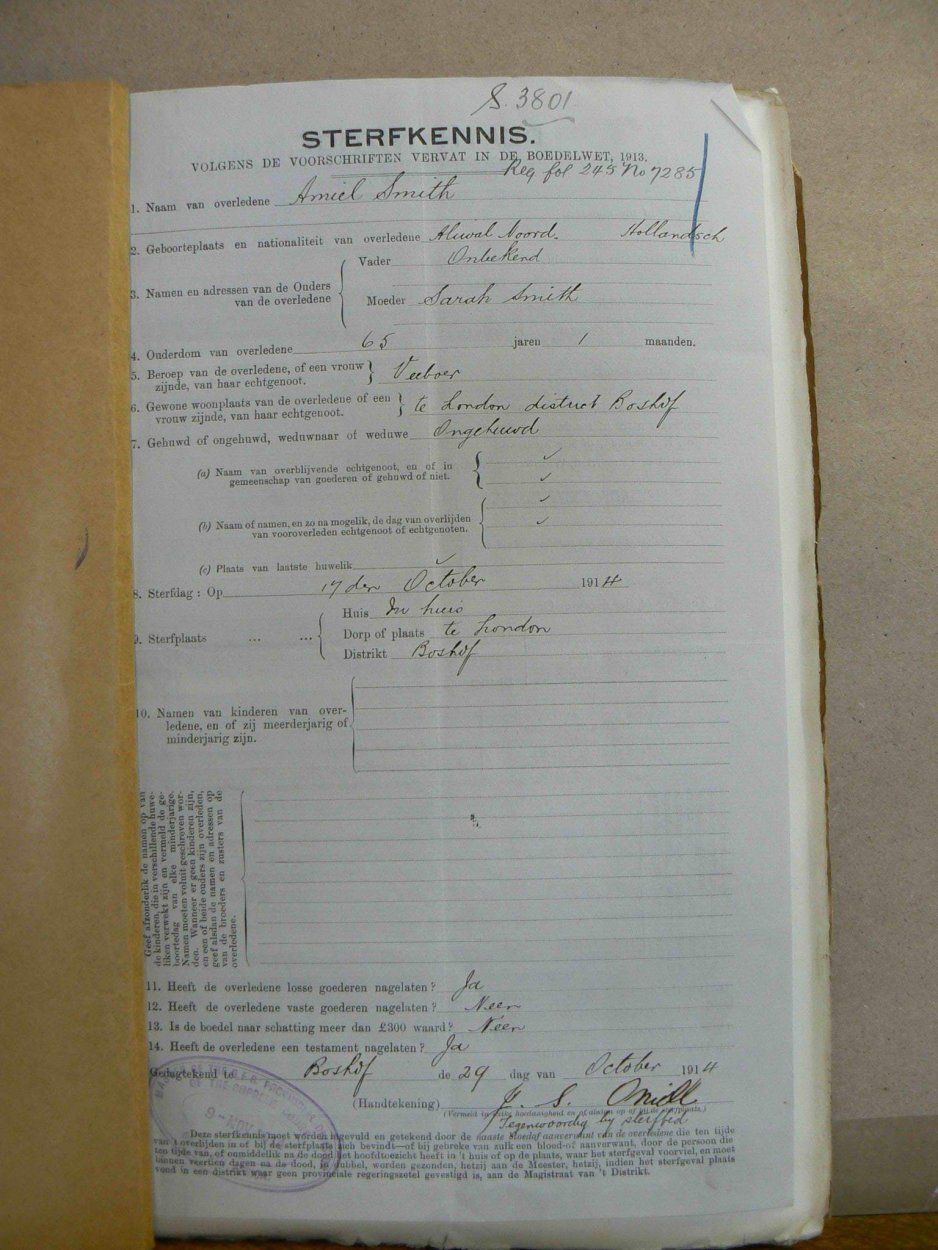 S. 3801
STERFKENNIS.
VOLGENS DE VOORSCHRIFTEN VERVAT IN DE BOEDELWET, 1913.
Reg fol 245 No 7285
1. Naam van overledene Amiel Smith
2. Geboorteplaats en nationaliteit van overledene Aliwal Noord. Hollandsch
3. Namen en adressen van de Ouders van de overledene
Vader Onbekend
Moeder Sarah Smith
4. Ouderdom van overledene 65 jaren 1 maanden.
5. Beroep van de overledene, of een vrouw
zijnde, van haar echtgenoot. Veeboer
6. Gewone woonplaats van de overledene of een
vrouw zijnde, van haar echtgenoot. te London district Boshof
7. Gehuwd of ongehuwd, weduwnaar of weduwe Ongehuwd
(a) Naam van overblijvende echtgenoot, en of in
gemeenschap van goederen of gehuwd of niet.
(b) Naam of namen, en zo na mogelik, de dag van overlijden
van vooroverleden echtgenoot of echtgenoten.
(c) Plaats van laatste huwelik
8. Sterfdag: Op 17 den October 1914
9. Sterfplaats ... ...
Huis In huis
Dorp of plaats te London
Distrikt Boshof
10. Namen van kinderen van over-
ledene, en of zij meerderjarig of
minderjarig zijn.
Geef afzonderlik de namen op van
de kinderen, die in verschillende huwe-
liken verwekt zijn en vermeld de ge-
boortedag van elke minderjarige.
Namen moeten voluit geschreven wor-
den. Wanneer er geen kinderen zijn,
en een of beide ouders zijn overleden,
geef alsdan de namen en adressen op
van de broeders en zusters van de
overledene.
11. Heeft de overledene losse goederen nagelaten? Ja
12. Heeft de overledene vaste goederen nagelaten? Neen
13. Is de boedel naar schatting meer dan £300 waard? Neen
14. Heeft de overledene een testament nagelaten? Ja
Gedagtekend te Boshof de 29 dag van October 1914
(Handtekening) J. S.
(Vermeld in welke hoedanigheid en of alsdan op of bij de sterfplaats.)
Tegenwoordig by sterfbed
Deze sterfkennis moet worden ingevuld en getekend door de naaste bloedaf aanverwant van de overledene die ten tijde
van 't overlijden in of bij de sterfplaats zich bevindt—of bij gebreke van zulk een bloed-of aanverwant, door de persoon die
ten tijde van, of onmiddelik na de dood het hoofdtoezicht heeft in 't huis of op de plaats, waar het sterfgeval voorviel, en moet
binnen veertien dagen na de dood, in dubbel, worden gezonden, hetzij aan de Meester, hetzij, indien het sterfgeval plaats
vond in een distrikt waar geen provinciale regeringszetel gevestigd is, aan de Magistraat van 't Distrikt.